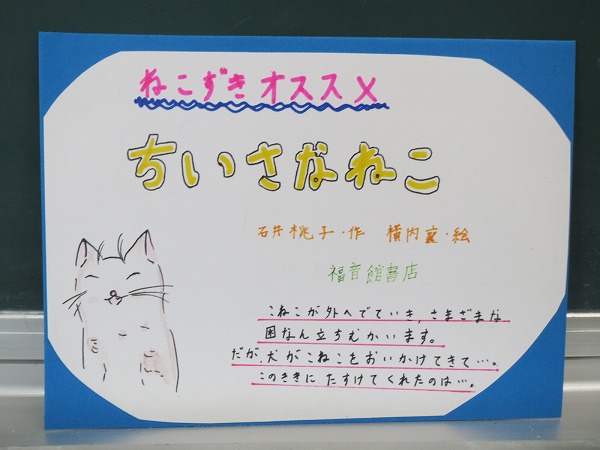 ねこずきオススメ
ちいさなねこ
石井桃子・作 横内襄・絵
福音館書店
こねこが外へでていき、さまざまな
困なん立ちむかいます。
だが、犬がこねこをおいかけてきて…。
このききにたすけてくれたのは…。